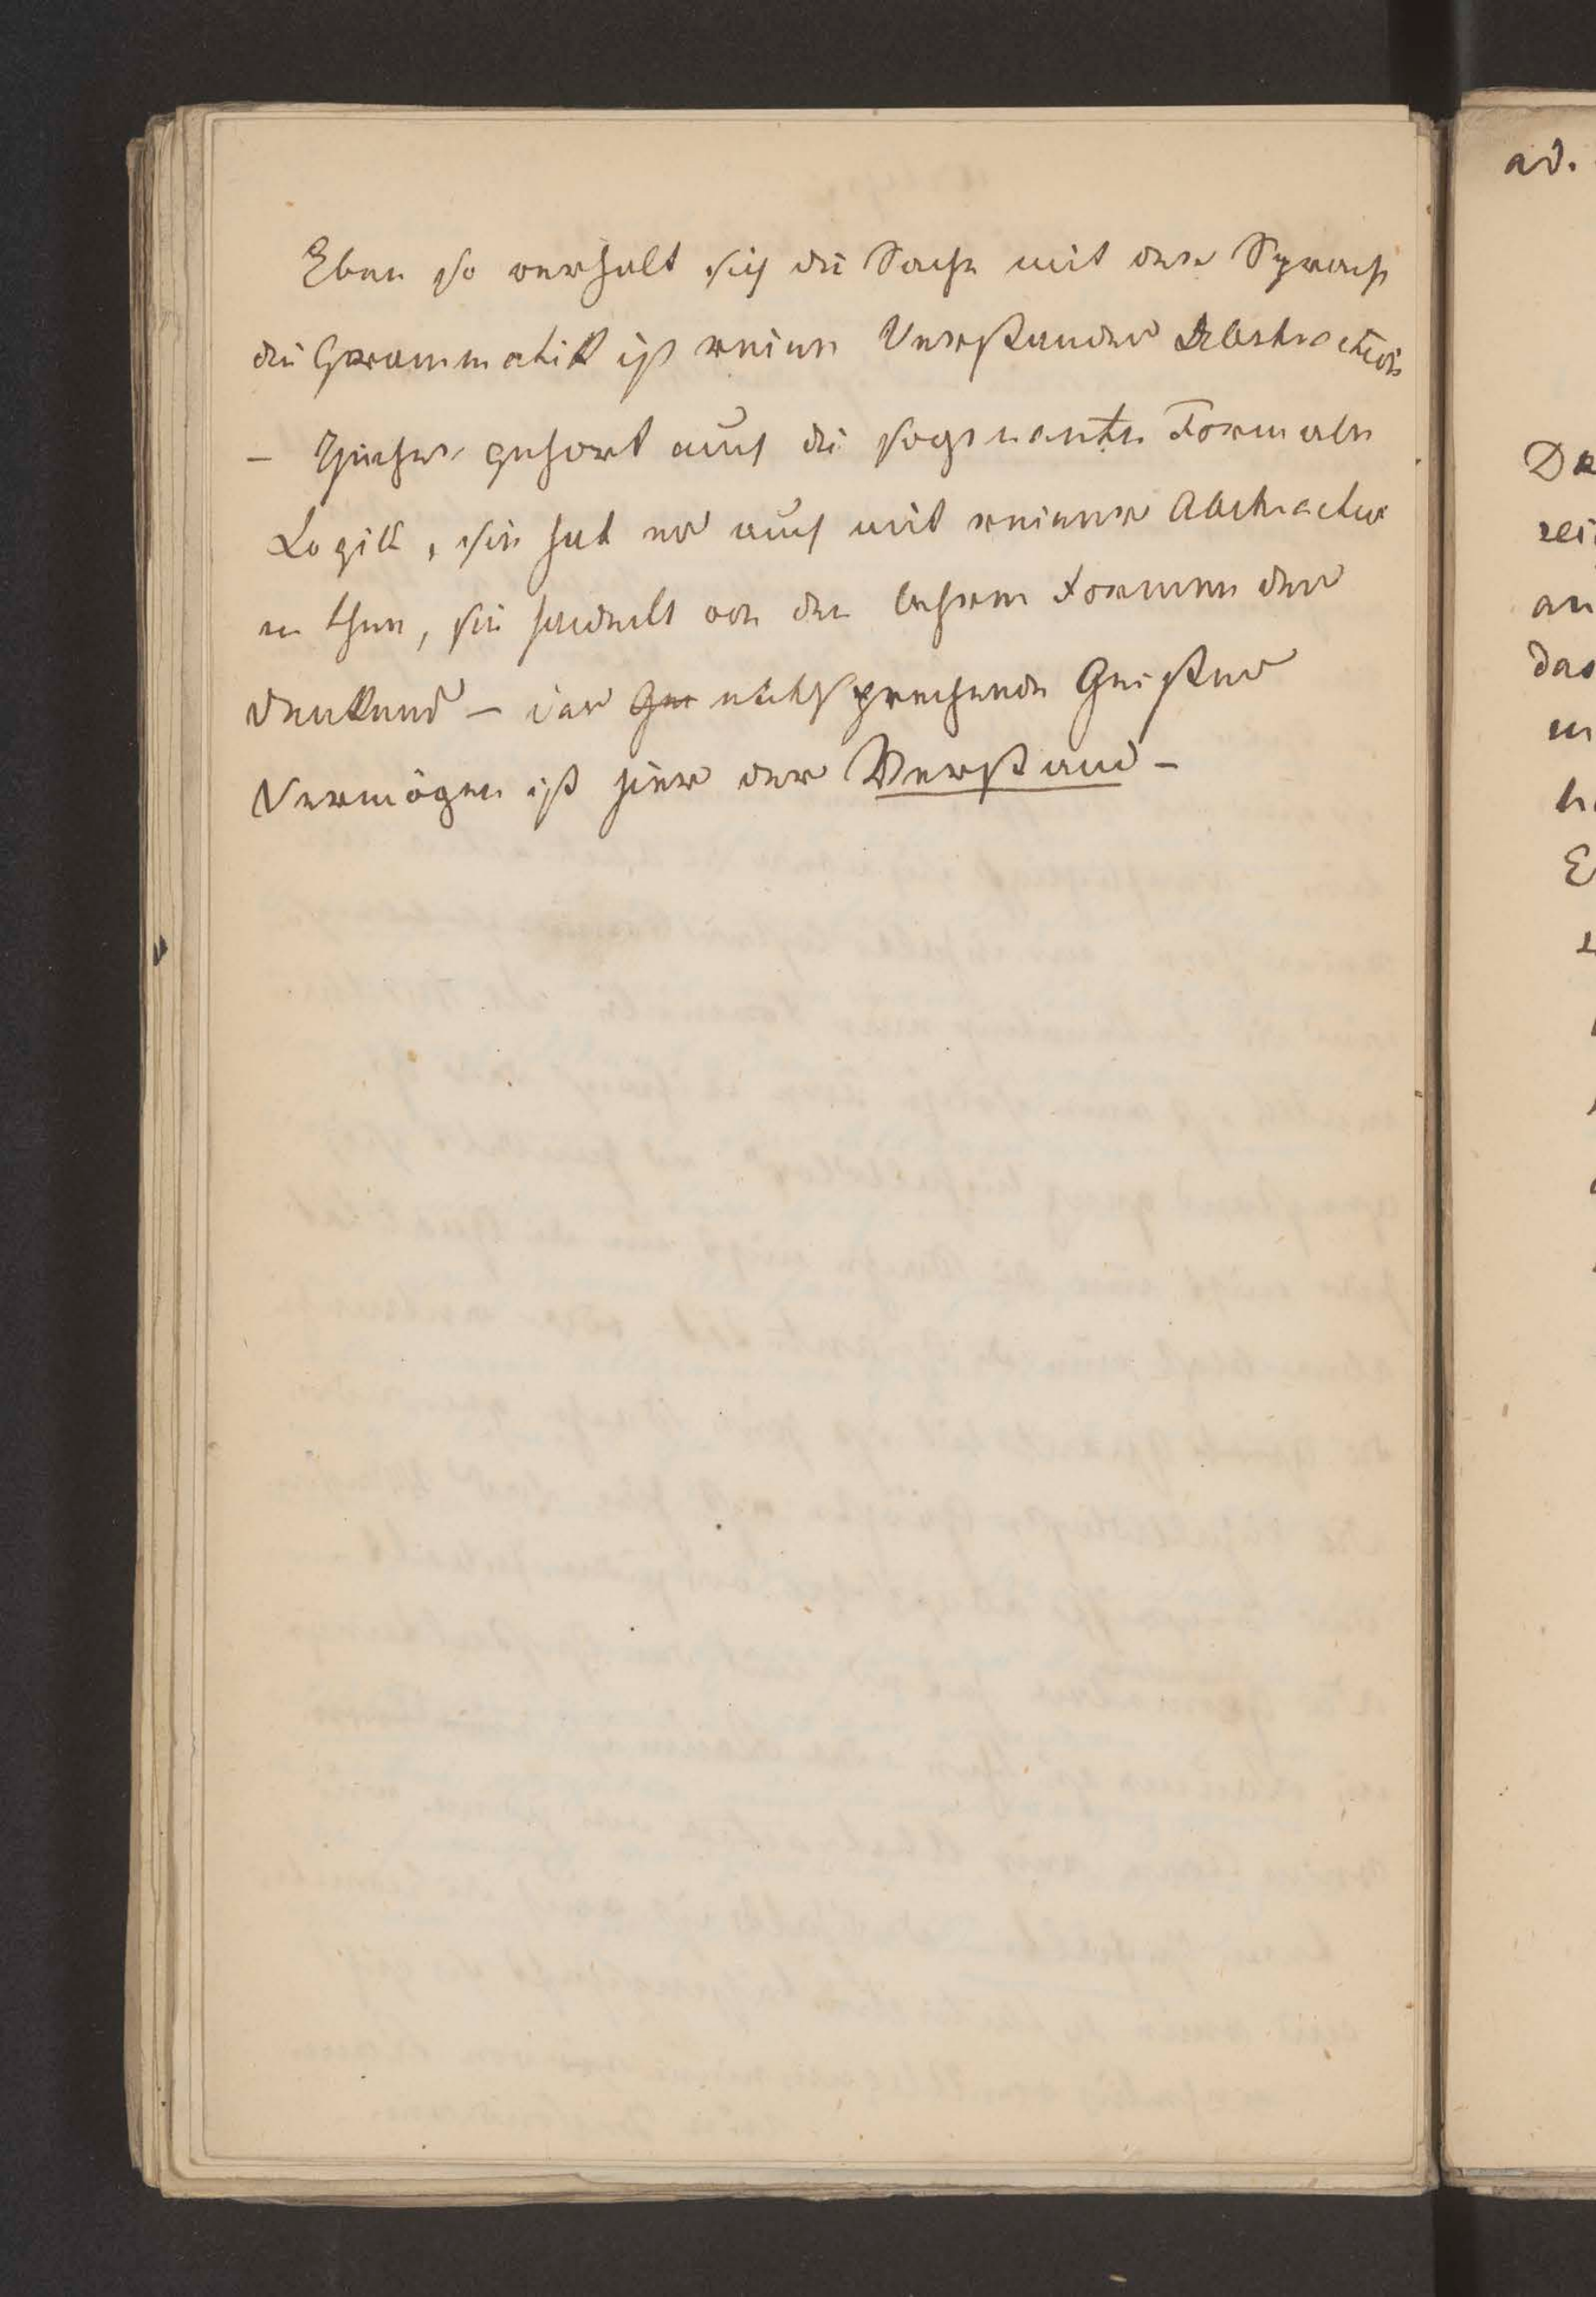 Eben so verhalt sich die Sache mit der Sprache
die Grammatik ist reine Verstandes Abstraction
– Hieher gehort auch die sogenante Formale
Logik, sie hat es auch mit reiner Abstraction
zu thun, sie handelt von den lehren Formen des
denkens – das Ge entsprechende Geistes
Vermögen ist hier der Verstand –
ad.
an
das